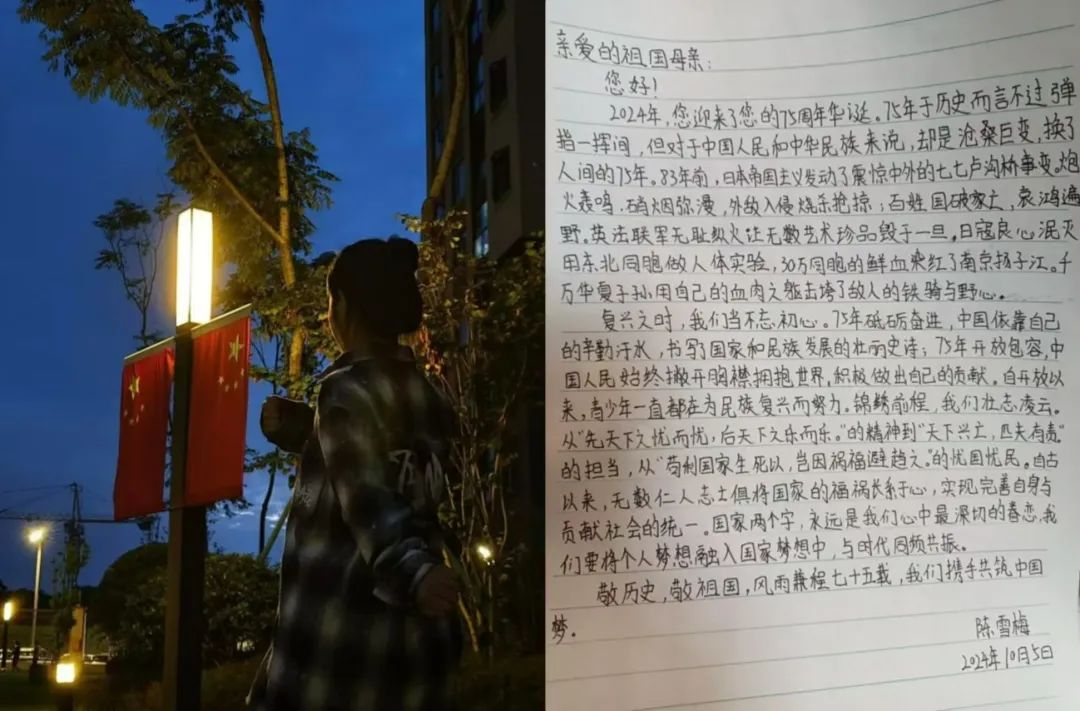 亲爱的祖国母亲:
您好!
2024年,您迎来了您的75周年华诞。75年于历史而言不过弹
挡一挥间,但对于中国人民和中华民族来说,却是沧桑巨变,换了
人间的75年。83年前,日本帝国主义发动了震惊中外的七七卢沟桥事变。炮
火轰鸣,硝烟弥漫,外敌入侵烧杀抢掠;百姓国破家亡,哀鸿遍
野。英法联军无耻纵火让无数艺术珍品毁于一旦。日寇良心泯灭
用东北同胞做人体实验,30万同胞的鲜血染红了南京扬子江。千
万华夏子孙用自己的血肉之躯击垮了敌人的铁骑与野心。
复兴之时,我们当不忘初心。75年砥砺奋进,中国依靠自己
的辛勤汗水,书写了国家和民族发展的壮丽史诗;75年开放包容,中
国人民始终撇开胸襟拥抱世界,积极做出自己的贡献。自开放以
来,青少年一直都在为民族复兴而努力。锦绣前程,我们壮志凌云。
从“先天下之忧而忧,后天下之乐而乐。”的精神到“天下兴亡,匹夫有责”
的担当,从“苟利国家生死以,岂因祸福避趋之。”的忧国忧民。自古
以来,无数仁人志士俱将国家的福祸长系于心,实现完善自身与
贡献社会的统一。国家两个字,永远是我们心中最深切的眷恋,我
们要将个人梦想融入国家梦想中,与时代同频共振。
敬历史,敬祖国,风雨兼程七十五载,我们携手共筑中国
梦。
陈雪梅
2024年10月5日